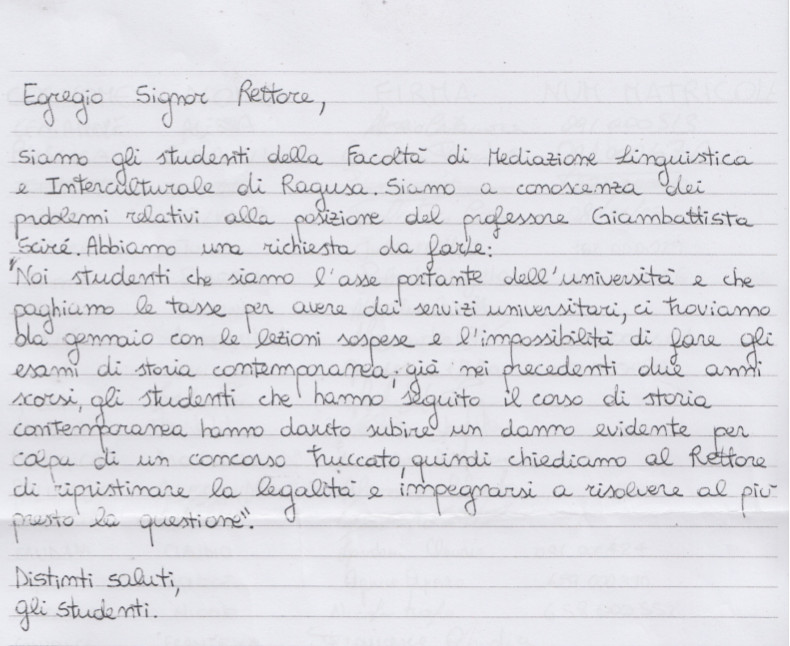 Egregio Signor Rettore,
siamo gli studenti della Facoltà di Mediazione Linguistica
e Interculturale di Ragusa. Siamo a conoscenza dei
problemi relativi alla posizione del professore Giambattista
Sciré. Abbiamo una richiesta da farle:
"Noi studenti che siamo l'asse portante dell'università e che
paghiamo le tasse per avere dei servizi universitari, ci troviamo
da gennaio con le lezioni sospese e l'impossibilità di fare gli
esami di storia contemporanea; già nei precedenti due anni
scorsi, gli studenti che hanno seguito il corso di storia
contemporanea hanno dovuto subire un danno evidente per
colpa di un concorso truccato, quindi chiediamo al Rettore
di ripristinare la legalità e impegnarsi a risolvere al più
presto la questione".
Distinti saluti,
gli studenti.